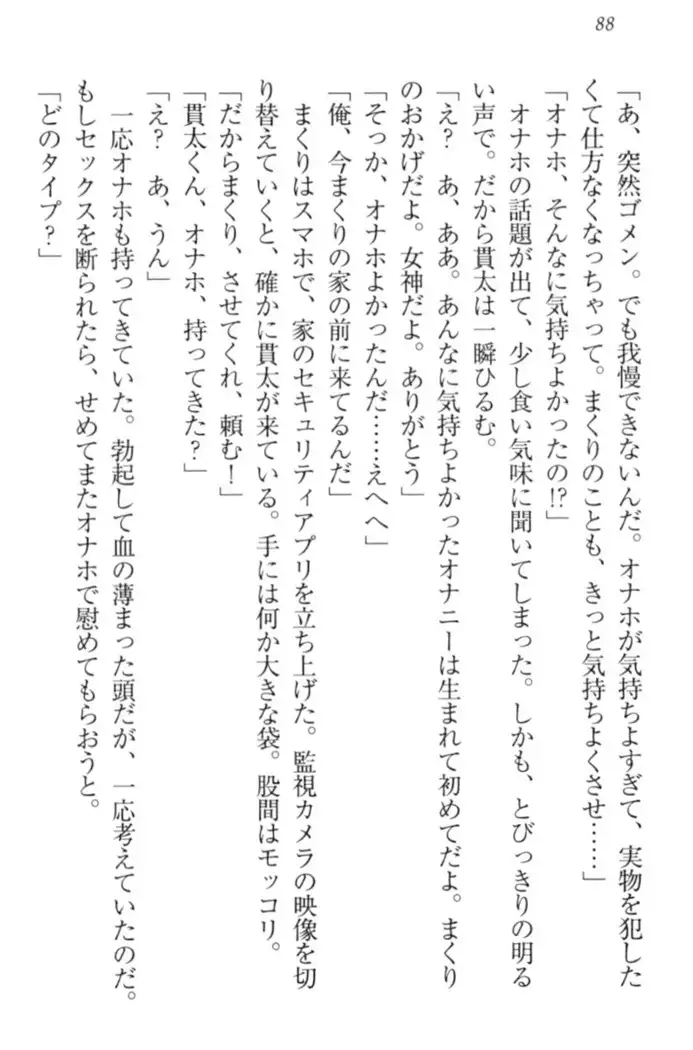 88
「あ、突然ゴメン。でも我慢できないんだ。オナホが気持ちよすぎて、実物を犯した
くて仕方なくなっちゃって。まくりのことも、きっと気持ちよくさせ……」
「オナホ、そんなに気持ちよかったの!?」
オナホの話題が出て、少し食い気味に聞いてしまった。しかも、とびっきりの明る
い声で。だから貫太は一瞬ひるむ。
「え？　あ、ああ。あんなに気持ちよかったオナニーは生まれて初めてだよ。まくり
のおかげだよ。女神だよ。ありがとう」
「そっか、オナホよかったんだ……えへへ」
「俺、今まくりの家の前に来てるんだ」
まくりはスマホで、家のセキュリティアプリを立ち上げた。監視カメラの映像を切
り替えていくと、確かに貫太が来ている。手には何か大きな袋。股間はモッコリ。
「だからまくり、させてくれ、頼む！」
「貫太くん、オナホ、持ってきた？」
「え？　あ、うん」
一応オナホも持ってきていた。勃起して血の薄まった頭だが、一応考えていたのだ。
もしセックスを断られたら、せめてまたオナホで慰めてもらおうと。
「どのタイプ？」